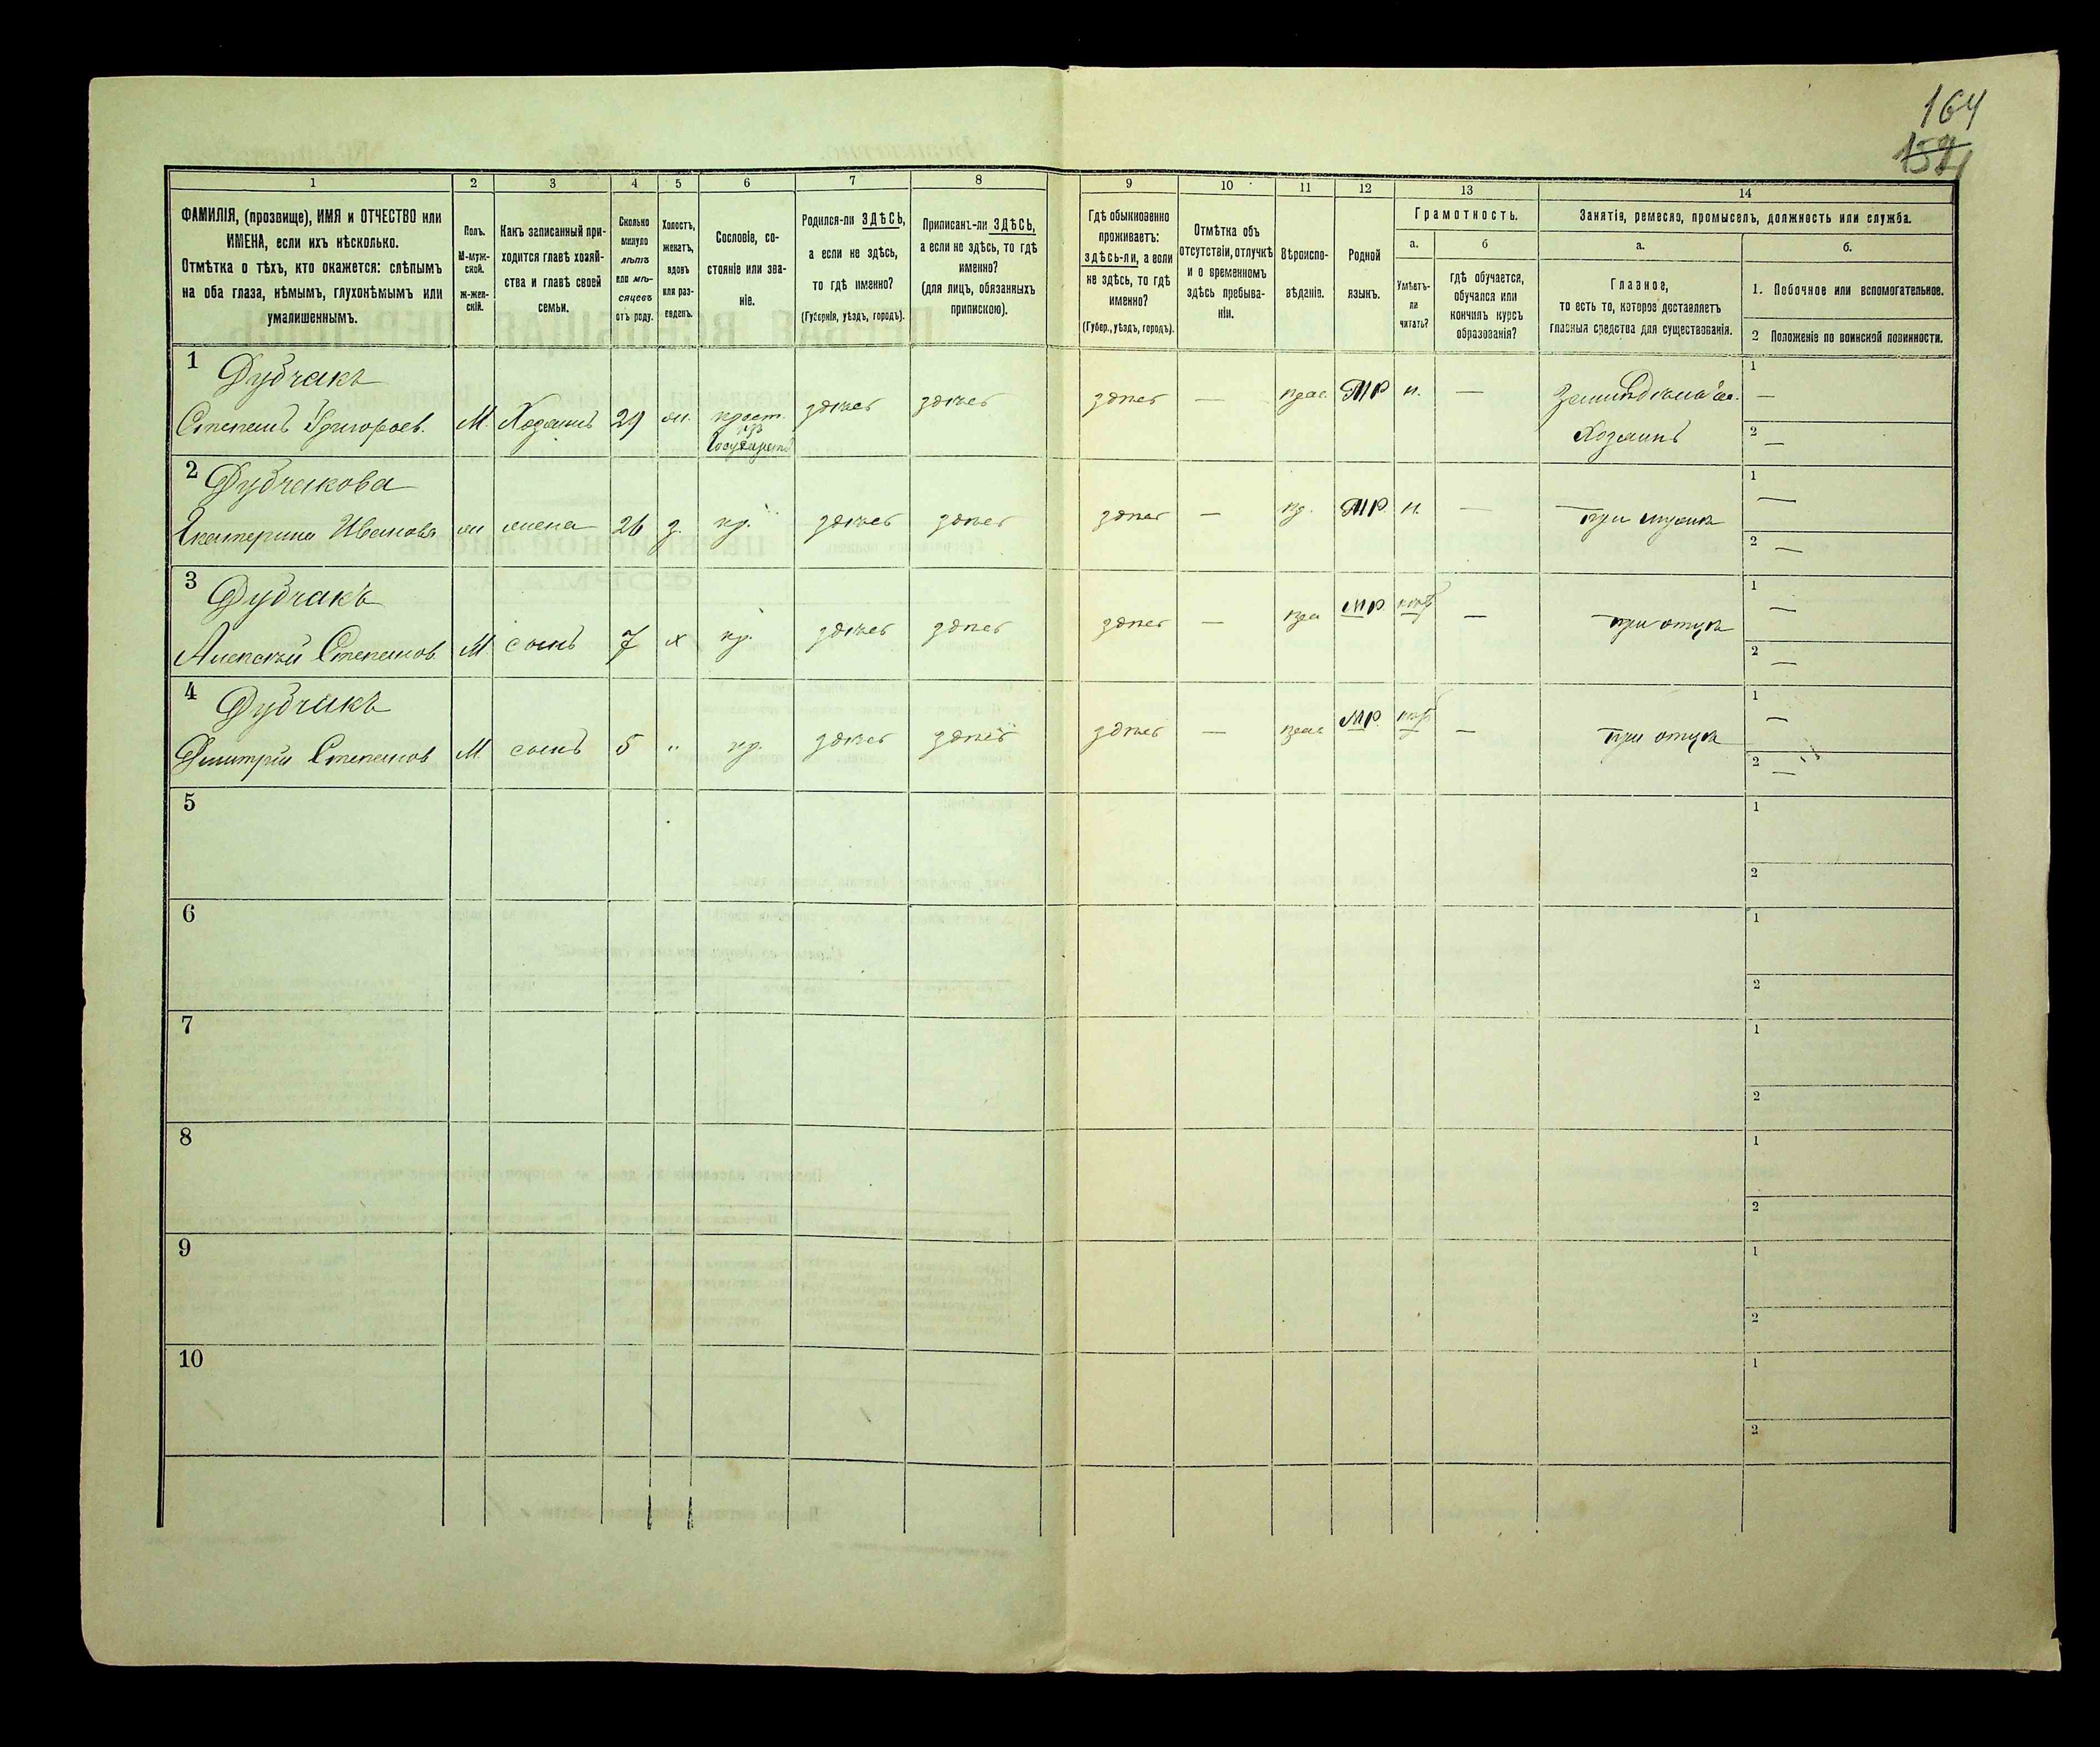 164
1 2 3 4 5 6 7 8 9 10 11 12 13 14
ФАМИЛІЯ, (прозвище), ИМЯ и ОТЧЕСТВО или
ИМЕНА, если ихъ нѣсколько.
Отмѣтка о тѣхъ, кто окажется: слѣпымъ
на оба глаза, нѣмымъ, глухонѣмымъ или
умалишеннымъ.
Полъ.
М-муж-
ской.
ж-жен-
скій.
Какъ записанный при-
ходится главѣ хозяй-
ства и главѣ своей
семьи.
Сколько
минуло
лѣтъ
или мѣ-
сяцевъ
отъ роду.
Холостъ,
женатъ,
вдовъ
или раз-
веденъ.
Сословіе, со-
стояніе или зва-
ніе.
Родился-ли ЗДѢСЬ,
а если не здѣсь,
то гдѣ именно?
(Губернія, уѣздъ, городъ).
Приписанъ-ли ЗДѢСЬ,
а если не здѣсь, то гдѣ
именно?
(для лицъ, обязанныхъ
припискою).
Гдѣ обыкновенно
проживаетъ:
здѣсь-ли, а если
не здѣсь, то гдѣ
именно?
(Губер., уѣздъ, городъ).
Отмѣтка объ
отсутствіи, отлучкѣ
и о временномъ
здѣсь пребыва-
ніи.
Вѣроиспо-
вѣданіе.
Родной
языкъ.
Грамотность.
а.
Умѣетъ-
ли
читать?
б
гдѣ обучается,
обучался или
кончилъ курсъ
образованія?
Занятіе, ремесло, промыселъ, должность или служба.
а.
Главное,
то есть то, которое доставляетъ
главныя средства для существованія.
б.
1. Побочное или вспомогательное.
2 Положеніе по воинской повинности.
1 Дубчакъ
Степанъ Григорьев. М. Хозяинъ 29 жен. крест. здѣсь здѣсь здѣсь — прав. МР н. — 1 —
изъ
Государств
Хозяинъ 2 —
2 Дубчакова
Екатерина Иванова ж жена 26 з. кр. здѣсь здѣсь здѣсь — пр. МР. н. — при мужѣ 1 —
2 —
3 Дубчакъ
Алексѣй Степанов М. сынъ 7 х кр. здѣсь здѣсь здѣсь — пра МР. — при отцѣ 1 —
2 —
4 Дубчакъ
Дмитрій Степанов М. сынъ 5 „ кр. здѣсь здѣсь здѣсь — прав МР. — при отцѣ 1 —
2 —
5 1
2
6 1
2
7 1
2
8 1
2
9 1
2
10 1
2